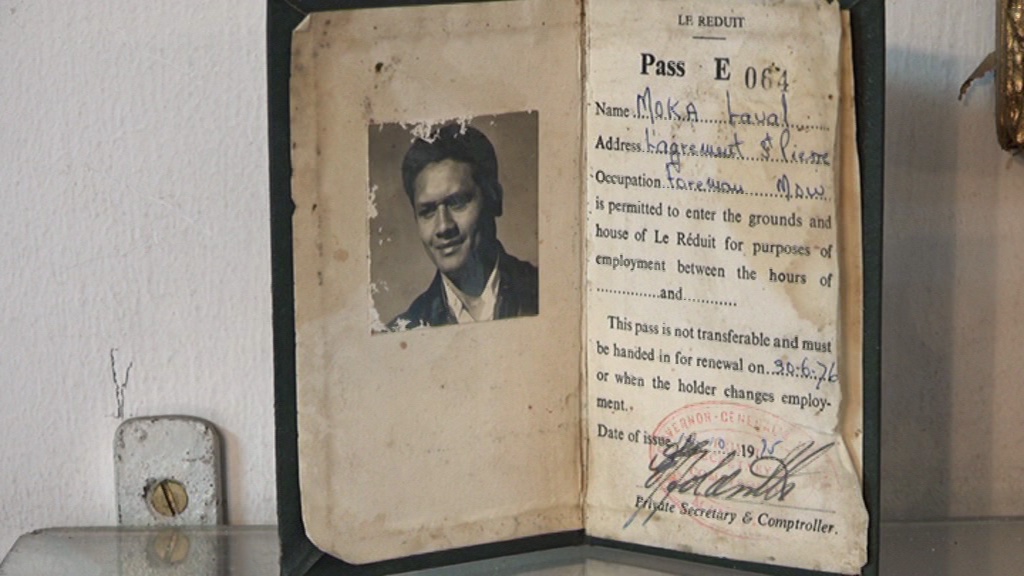 LE REDUIT
Pass E 064
Name MOKA Laval
Address L'agrement St Pierre
Occupation Foreman MOW
is permitted to enter the grounds and
house of Le Réduit for purposes of
employment between the hours of
..............and............
This pass is not transferable and must
be handed in for renewal on 30.6.76
or when the holder changes employ-
ment.
Date of issue 10 1975
VERNOR-GENERAL
Private Secretary & Comptroller.